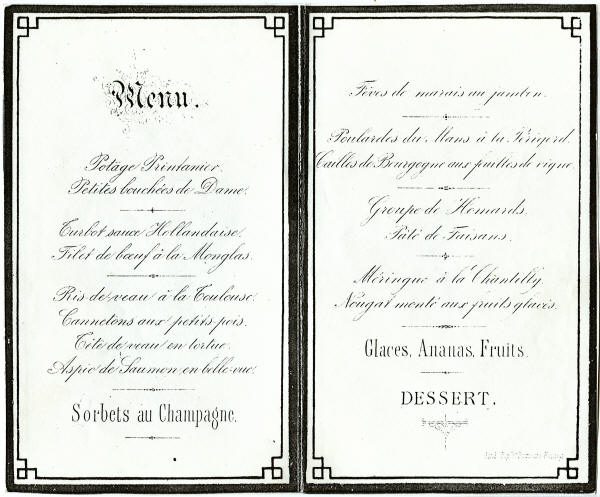 Menu.
Potage Printanier.
Petites bouchées de Dame.
Turbot sauce Hollandaise.
Filet de bœuf à la Monglas.
Ris de veau à la Toulouse.
Cannetons aux petits-pois.
Tête de veau en tortue.
Aspic de Saumon en belle-vue.
Sorbets au Champagne.
Fèves de marais au jambon.
Poulardes du Mans à la Périgord.
Cailles de Bourgogne aux feuilles de vigne.
Groupe de Homards.
Pâté de Faisans.
Méringue à la Chantilly.
Nougat monté aux fruits glacés.
Glaces, Ananas, Fruits.
DESSERT.